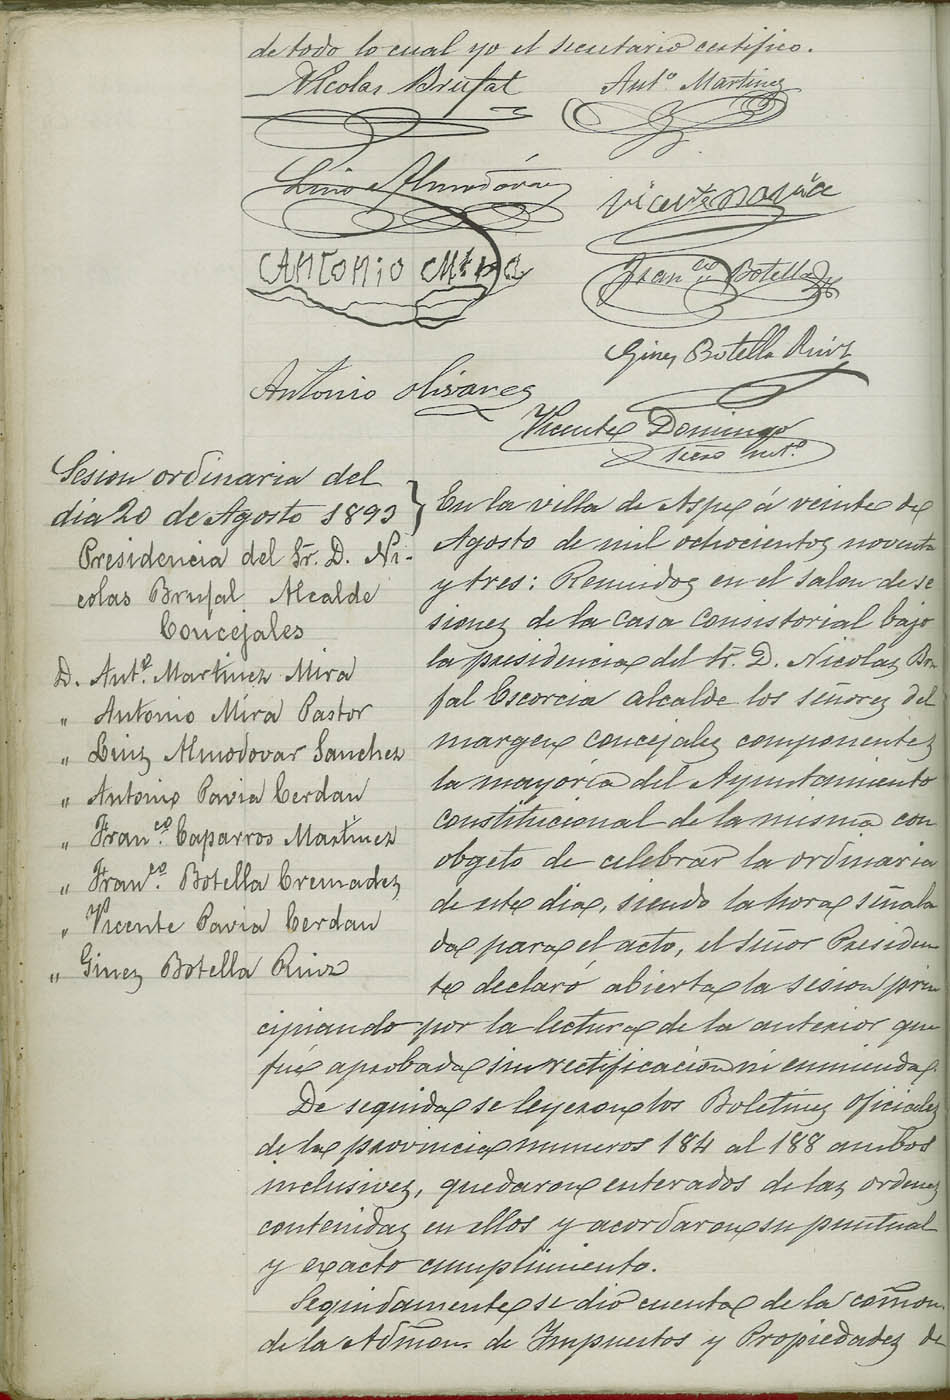 de todo lo cual yo el secretario certifico.
Nicolas Brufal
Ant.º Martinez
Luis Almodóvar
Vicente Pavia
Antonio Mira
Fran.co Botella
Gines Botella Ruiz
Antonio Olivares
Vicente Domingo
Srio int.º
Sesion ordinaria del
dia 20 de Agosto 1893
Presidencia del Sr. D. Ni-
colas Brufal Alcalde
Concejales
D. Ant.º Martinez Mira
„ Antonio Mira Pastor
„ Luis Almodovar Sanchez
„ Antonio Pavia Cerdan
„ Fran.co Caparros Martinez
„ Fran.co Botella Cremades
„ Vicente Pavia Cerdan
„ Ginez Botella Ruiz
En la villa de Aspe á veinte de
Agosto de mil ochocientos noventa
y tres: Reunidos en el salon de se
siones de la casa consistorial bajo
la presidencia del Sr. D. Nicolas Bru
fal Escorcia alcalde los señores del
margen concejales componentes
la mayoría del Ayuntamiento
constitucional de la misma con
obgeto de celebrar la ordinaria
de este dia, siendo la hora señala
da para el acto, el señor Presiden
te declaró abierta la sesion prin
cipiando por la lectura de la anterior que
fué aprobada sin rectificacion ni enmienda.
De seguida se leyeron los Boletines oficiales
de la provincia numeros 184 al 188 ambos
inclusives, quedaron enterados de las ordenes
contenidas en ellos y acordaron su puntual
y exacto cumplimiento.
Seguidamente se dió cuenta de la comon.
de la Admon. de Impuestos y Propiedades de